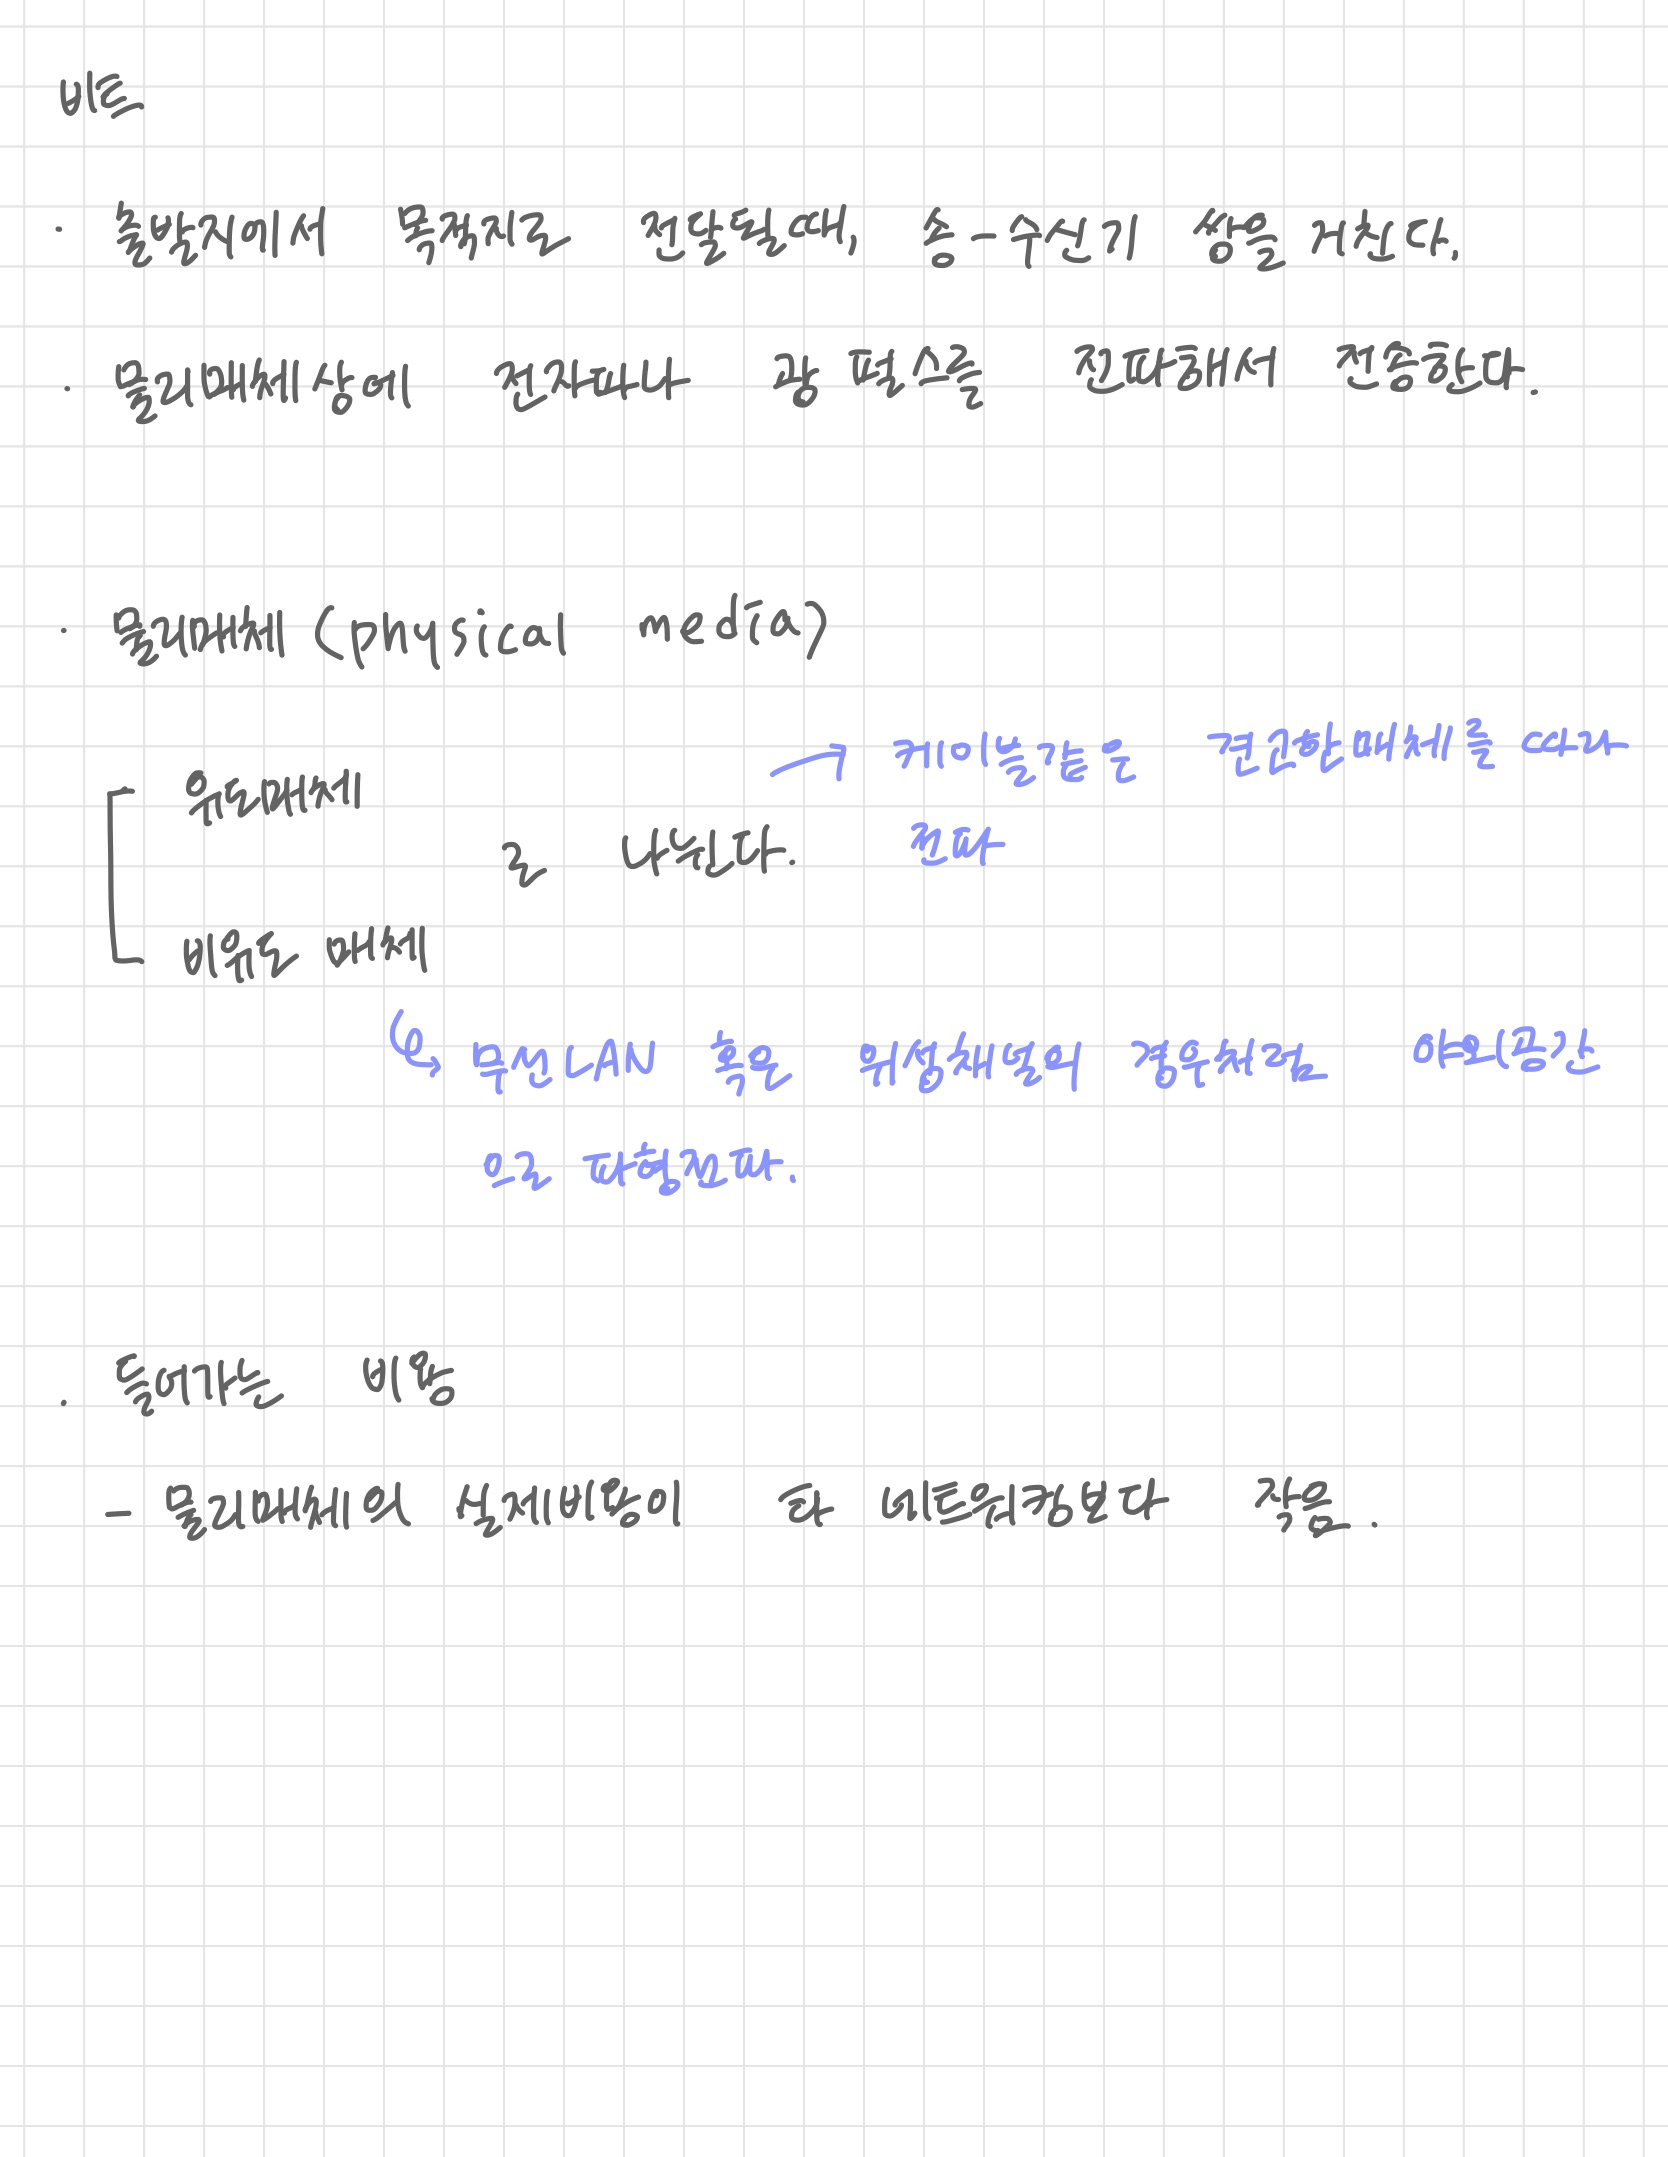 비트
· 출발지에서 목적지로 전달될때, 송-수신기 쌍을 거친다.
· 물리매체상에 전자파나 광 펄스를 전파해서 전송한다.
· 물리매체 (physical media)
유도매체
→ 케이블같은 견고한매체를 따라
전파
로 나뉜다.
비유도 매체
↳ 무선LAN 혹은 위성채널의 경우처럼 야외공간
으로 파형전파.
· 들어가는 비용
- 물리매체의 실제비용이 타 네트워킹보다 작음.